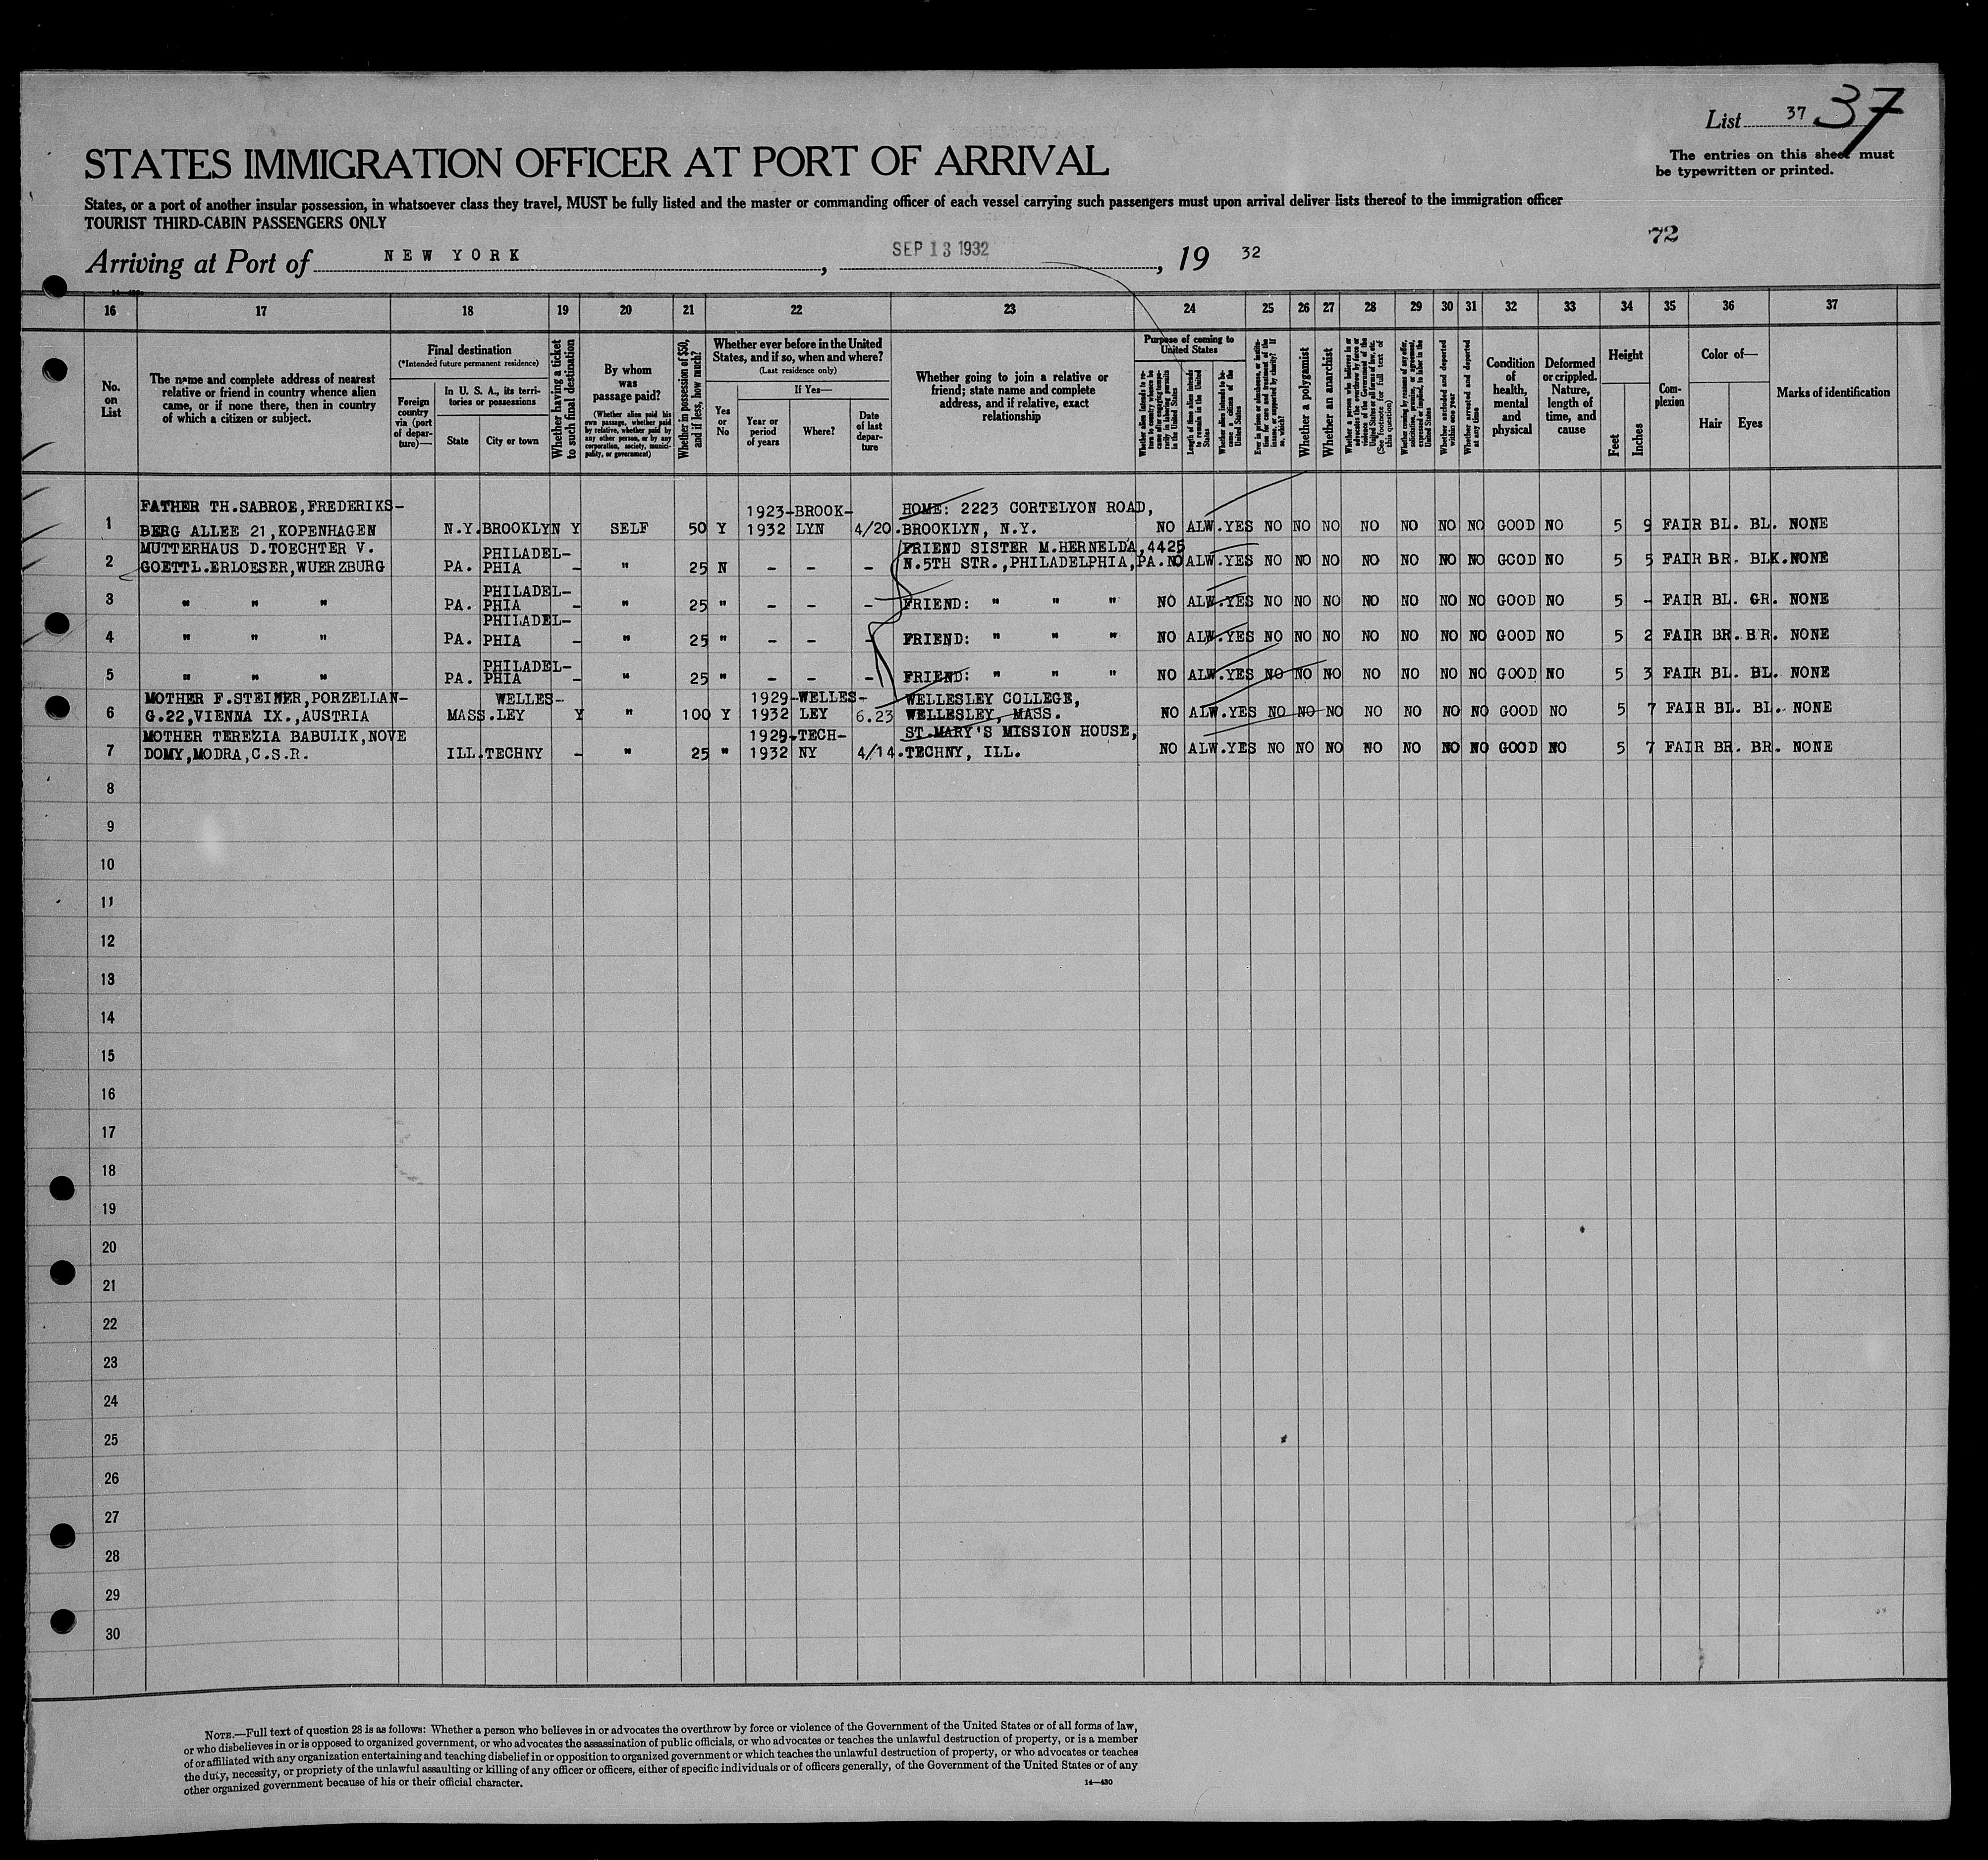 List 37 37
The entries on this sheet must
be typewritten or printed.
STATES IMMIGRATION OFFICER AT PORT OF ARRIVAL
States, or a port of another insular possession, in whatsoever class they travel, MUST be fully listed and the master or commanding officer of each vessel carrying such passengers must upon arrival deliver lists thereof to the immigration officer
TOURIST THIRD-CABIN PASSENGERS ONLY
72
Arriving at Port of NEW YORK, SEP 13 1932, 19 32
16 17 18 19 20 21 22 23 24 25 26 27 28 29 30 31 32 33 34 35 36 37
No.
on
List
The name and complete address of nearest
relative or friend in country whence alien
came, or if none there, then in country
of which a citizen or subject.
Final destination
(*Intended future permanent residence)
Foreign
country
via (port
of depar-
ture)—
In U. S. A., its terri-
tories or possessions
State
City or town
Whether having a ticket
to such final destination
By whom
was
passage paid?
(Whether alien paid his
own passage, whether paid
by relative, whether paid by
any other person, or by any
corporation, society, munici-
pality, or government)
Whether in possession of $50,
and if less, how much?
Whether ever before in the United
States, and if so, when and where?
(Last residence only)
Yes
or
No
If Yes—
Year or
period
of years
Where?
Date
of last
depar-
ture
Whether going to join a relative or
friend; state name and complete
address, and if relative, exact
relationship
Purpose of coming to
United States
Whether alien intends to re-
turn to country whence he
came after engaging tempo-
rarily in laboring pursuits
in the United States
Length of time alien intends
to remain in the United
States
Whether alien intends to be-
come a citizen of the
United States
Ever in prison or almshouse, or institu-
tion for care and treatment of the
insane, or supported by charity? If
so, which?
Whether a polygamist
Whether an anarchist
Whether a person who believes in or
advocates the overthrow by force or
violence of the Government of the
United States or all forms of law, etc.
(See footnote for full text of
this question)
Whether coming by reason of any offer,
solicitation, promise, or agreement,
expressed or implied, to labor in the
United States
Whether excluded and deported
within one year
Whether arrested and deported
at any time
Condition
of
health,
mental
and
physical
Deformed
or crippled.
Nature,
length of
time, and
cause
Height
Feet
Inches
Com-
plexion
Color of—
Hair
Eyes
Marks of identification
FATHER TH.SABROE,FREDERIKS- 1923-BROOK- HOME: 2223 CORTELYON ROAD,
1 BERG ALLEE 21,KOPENHAGEN N.Y. BROOKLYN Y SELF 50 Y 1932 LYN 4/20. BROOKLYN, N.Y. NO ALW. YES NO NO NO NO NO NO NO GOOD NO 5 9 FAIR BL. BL. NONE
MUTTERHAUS D.TOECHTER V. PHILADEL- FRIEND SISTER M.HERNELDA,4425
2 GOETTL.ERLOESER,WUERZBURG PA. PHIA - " 25 N - - - N.5TH STR.,PHILADELPHIA,PA. NO ALW. YES NO NO NO NO NO NO NO GOOD NO 5 5 FAIR BR. BLK. NONE
PHILADEL-
3 " " " PA. PHIA - " 25 " - - - FRIEND: " " " NO ALW. YES NO NO NO NO NO NO NO GOOD NO 5 - FAIR BL. GR. NONE
PHILADEL-
4 " " " PA. PHIA - " 25 " - - - FRIEND: " " " NO ALW. YES NO NO NO NO NO NO NO GOOD NO 5 2 FAIR BR. BR. NONE
PHILADEL-
5 " " " PA. PHIA - " 25 " - - - FRIEND: " " " NO ALW. YES NO NO NO NO NO NO NO GOOD NO 5 3 FAIR BL. BL. NONE
MOTHER F.STEINER,PORZELLAN- WELLES- 1929-WELLES- WELLESLEY COLLEGE,
6 G.22,VIENNA IX.,AUSTRIA MASS. LEY Y " 100 Y 1932 LEY 6.23 WELLESLEY, MASS. NO ALW. YES NO NO NO NO NO NO NO GOOD NO 5 7 FAIR BL. BL. NONE
MOTHER TEREZIA BABULIK,NOVE 1929-TECH- ST.MARY'S MISSION HOUSE,
7 DOMY,MODRA,C.S.R. ILL. TECHNY - " 25 " 1932 NY 4/14. TECHNY, ILL. NO ALW. YES NO NO NO NO NO NO NO GOOD NO 5 7 FAIR BR. BR. NONE
8
9
10
11
12
13
14
15
16
17
18
19
20
21
22
23
24
25
26
27
28
29
30
NOTE.—Full text of question 28 is as follows: Whether a person who believes in or advocates the overthrow by force or violence of the Government of the United States or of all forms of law,
or who disbelieves in or is opposed to organized government, or who advocates the assassination of public officials, or who advocates or teaches the unlawful destruction of property, or is a member
of or affiliated with any organization entertaining and teaching disbelief in or opposition to organized government or which teaches the unlawful destruction of property, or who advocates or teaches
the duty, necessity, or propriety of the unlawful assaulting or killing of any officer or officers, either of specific individuals or of officers generally, of the Government of the United States or of any
other organized government because of his or their official character.
14—430